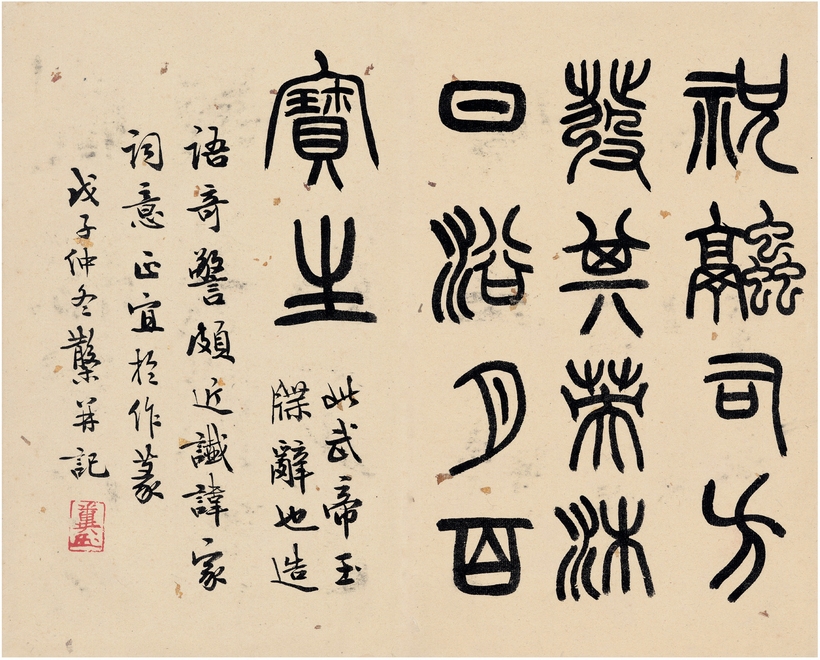 祝融司方
發其英沐
日浴月百
寶生
此武帝玉
牒辭也造
語奇警頗近讖諱家
詞意正宜於作篆
戊子仲冬并記